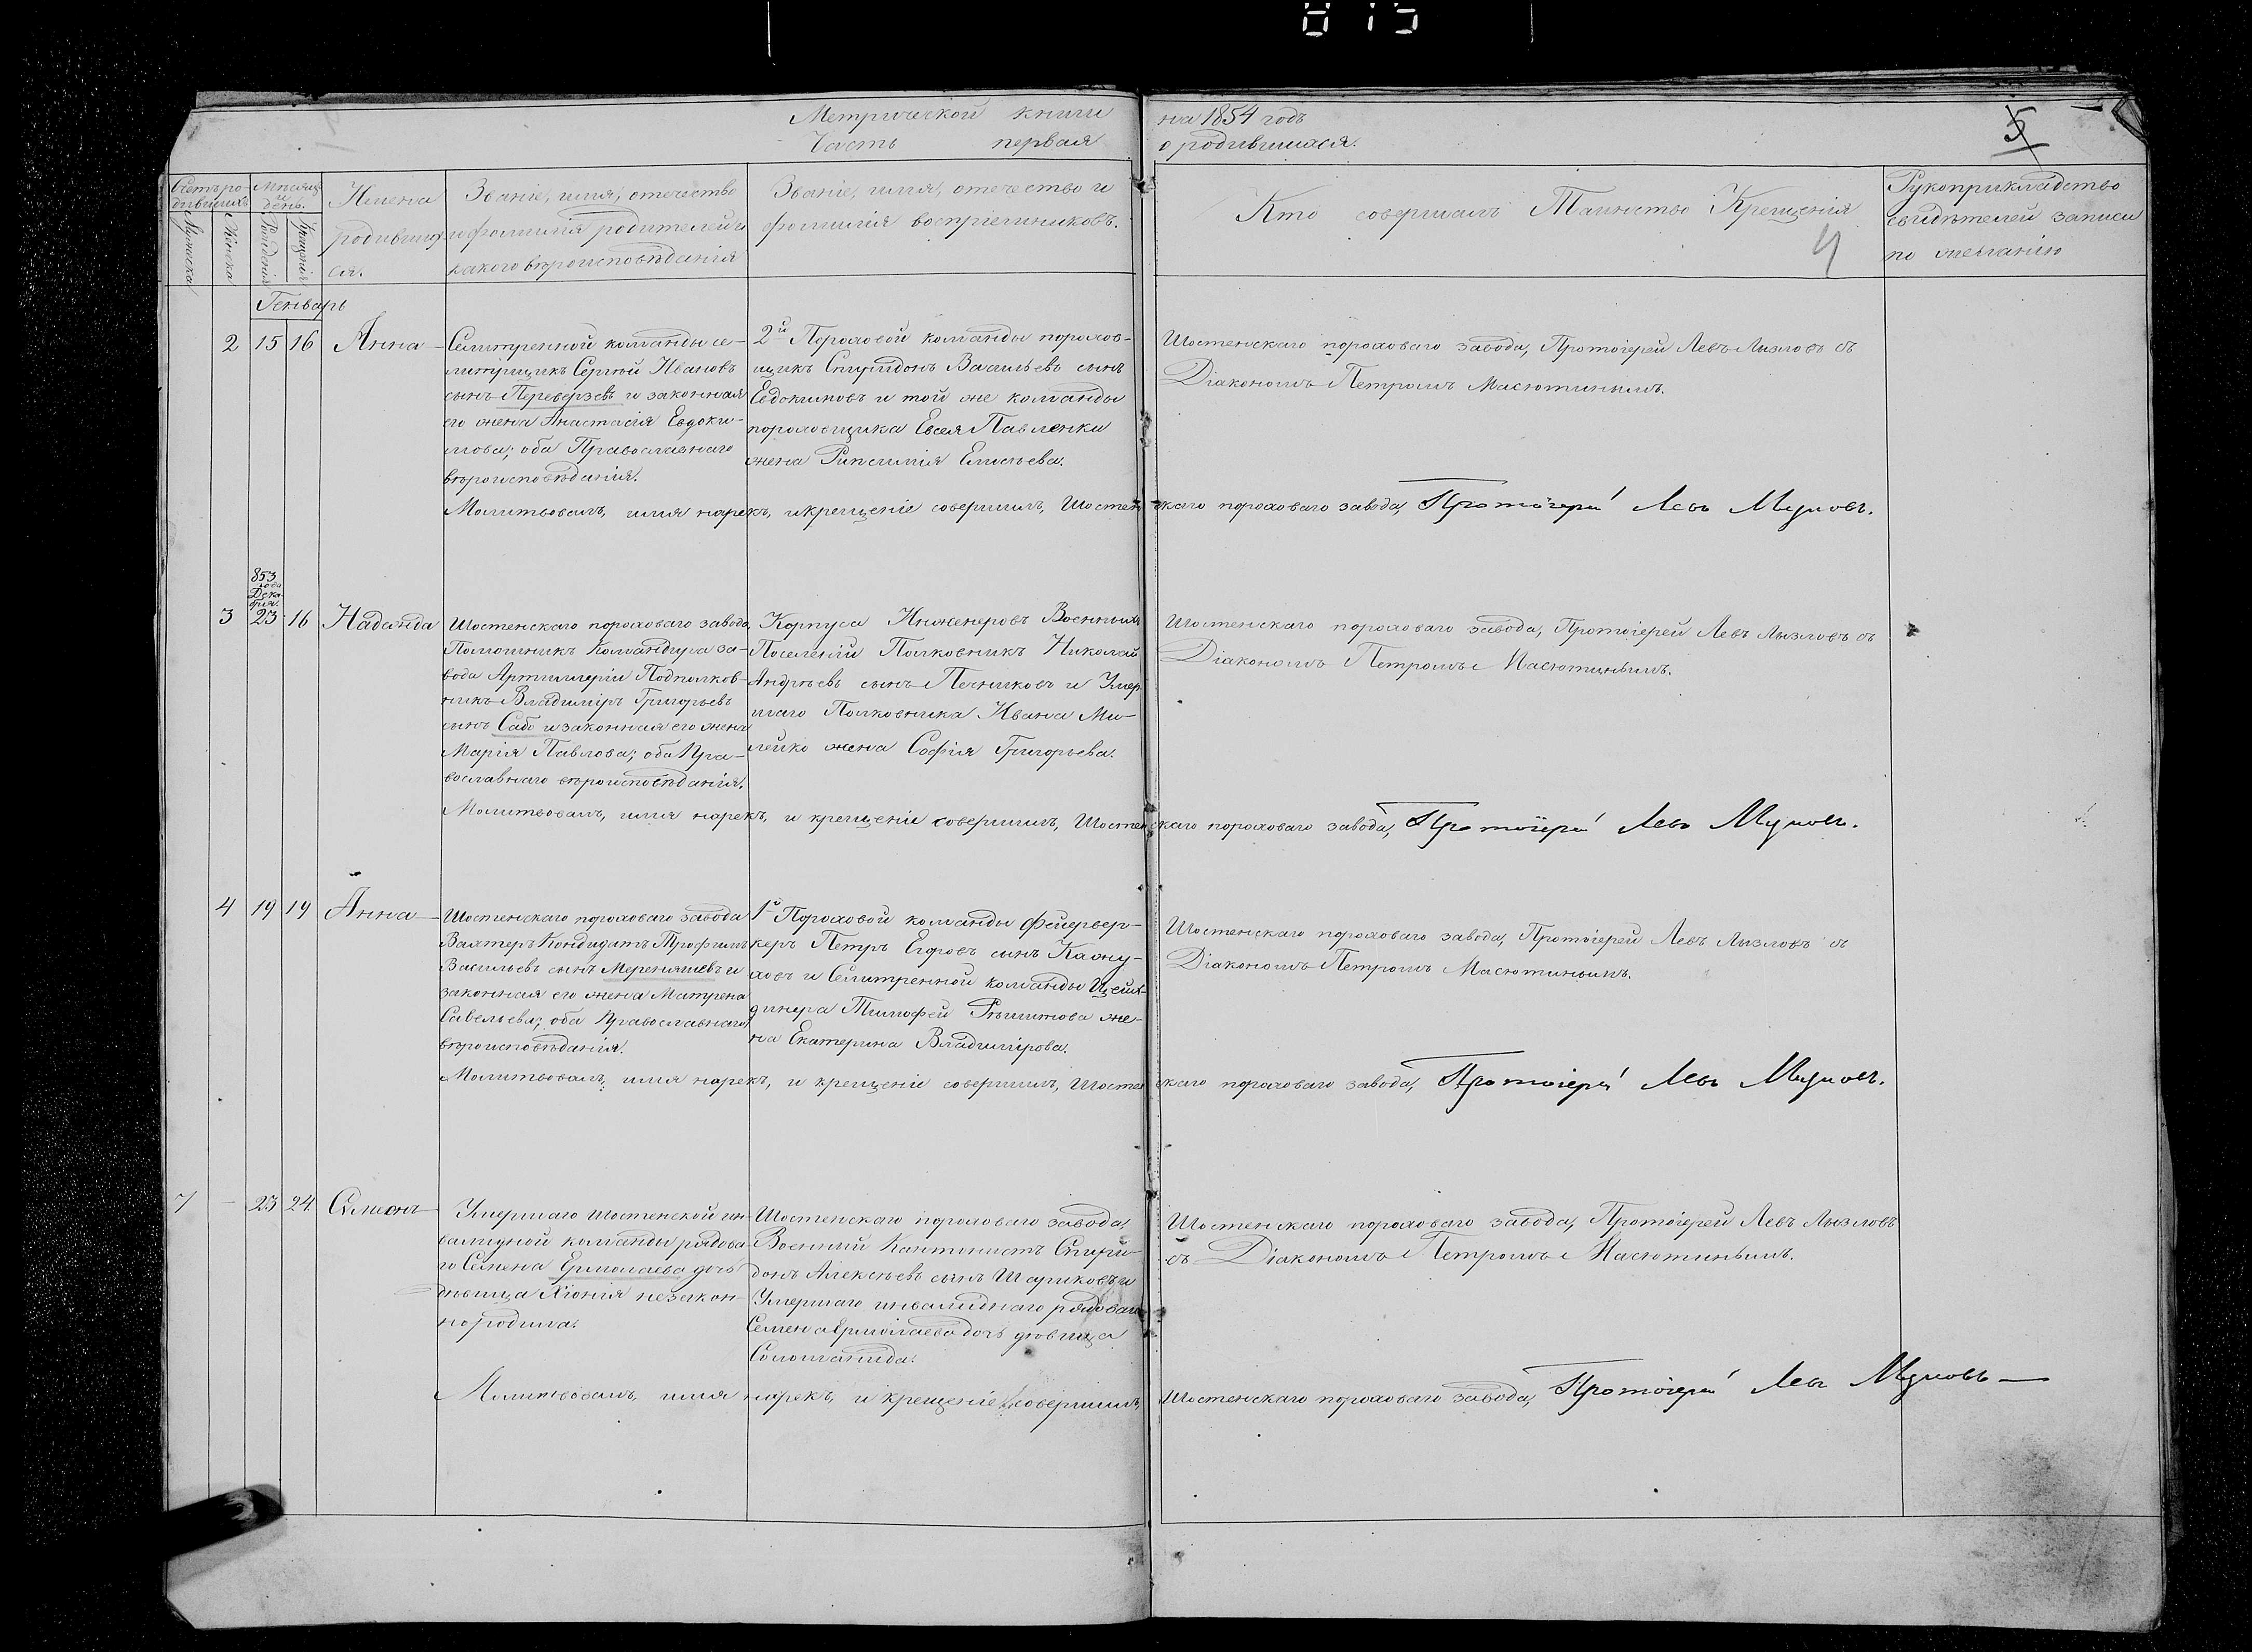 Метрической книги на 1854 годъ
Часть первая о родившихся.
5
4
Счетъ родившихся
Мужеска
Женска
Мѣсяцъ и день.
Рожденія
Крещенія
Имена
родивших-
ся.
Званіе, имя, отечество
и фамилія родителей и
какого вѣроисповѣданія
Званіе, имя, отечество и
фамилія воспріемниковъ.
Кто совершалъ Таинство Крещенія
Рукоприкладство
свидѣтелей записи
по желанію
Генварь
2 15 16 Анна
Селитренной команды се-
литрщикъ Сергѣй Ивановъ
сынъ Переверзевъ и законная
его жена Анастасія Евдоки-
мова; оба Православнаго
вѣроисповѣданія.
2й Пороховой команды порохов-
щикъ Спиридонъ Васильевъ сынъ
Евдокимовъ и той же команды
пороховщика Евсея Павленки
жена Рипсимія Елисѣева.
Шостенскаго пороховаго завода, Протоіерей Левъ Лызловъ съ
Діакономъ Петромъ Масютинымъ.
Молитвовалъ, имя нарекъ, и крещеніе совершилъ, Шостенскаго пороховаго завода, Протоіерей Левъ Лызловъ.
853
года
Дека-
бря.
3 23 16 Надежда
Шостенскаго пороховаго завода,
Помошникъ Командира за-
вода Артиллеріи Подполков-
никъ Владиміръ Григорьевъ
сынъ Сабо и законная его жена
Марія Павлова; оба Пра-
вославнаго вѣроисповѣданія.
Корпуса Инженеровъ Военныхъ
Поселеній Полковникъ Николай
Андреевъ сынъ Печниковъ и Умер-
шаго Полковника Ивана Ми-
лейко жена Софія Григорьева.
Шостенскаго пороховаго завода, Протоіерей Левъ Лызловъ съ
Діакономъ Петромъ Масютинымъ.
Молитвовалъ, имя нарекъ, и крещеніе совершилъ, Шостенскаго пороховаго завода, Протоіерей Левъ Лызловъ.
4 19 19 Анна
Шостенскаго пороховаго завода
Вахтеръ Кондидатъ Трофимъ
Васильевъ сынъ Мереняшевъ и
законная его жена Матрена
Савельева; оба Православнаго
вѣроисповѣданія.
1й Пороховой команды фейервер-
керъ Петръ Егоровъ сынъ Кажу-
ховъ и Селитренной команды Цейх-
динера Тимофей жe-
на Екатерина Владимірова.
Шостенскаго пороховаго завода, Протоіерей Левъ Лызловъ съ
Діакономъ Петромъ Масютинымъ.
Молитвовалъ, имя нарекъ, и крещеніе совершилъ, Шостенскаго пороховаго завода, Протоіерей Левъ Лызловъ.
7 – 23 24 Симеонъ
Умершаго Шостенской ин-
валидной команды рядова-
го Семена Ермолаева дочь
дѣвица Хіонія незакон-
но родила.
Шостенскаго пороховаго завода,
Военный Кантонистъ Спири-
донъ Алексѣевъ сынъ Шариковъ и
Умершаго инвалиднаго рядоваго
Семена Ермолаева дочь дѣвица
Соломанида.
Шостенскаго пороховаго завода, Протоіерей Левъ Лызловъ
съ Діакономъ Петромъ Масютинымъ.
Молитвовалъ, имя нарекъ, и крещеніе совершилъ, Шостенскаго пороховаго завода, Протоіерей Левъ Лызловъ